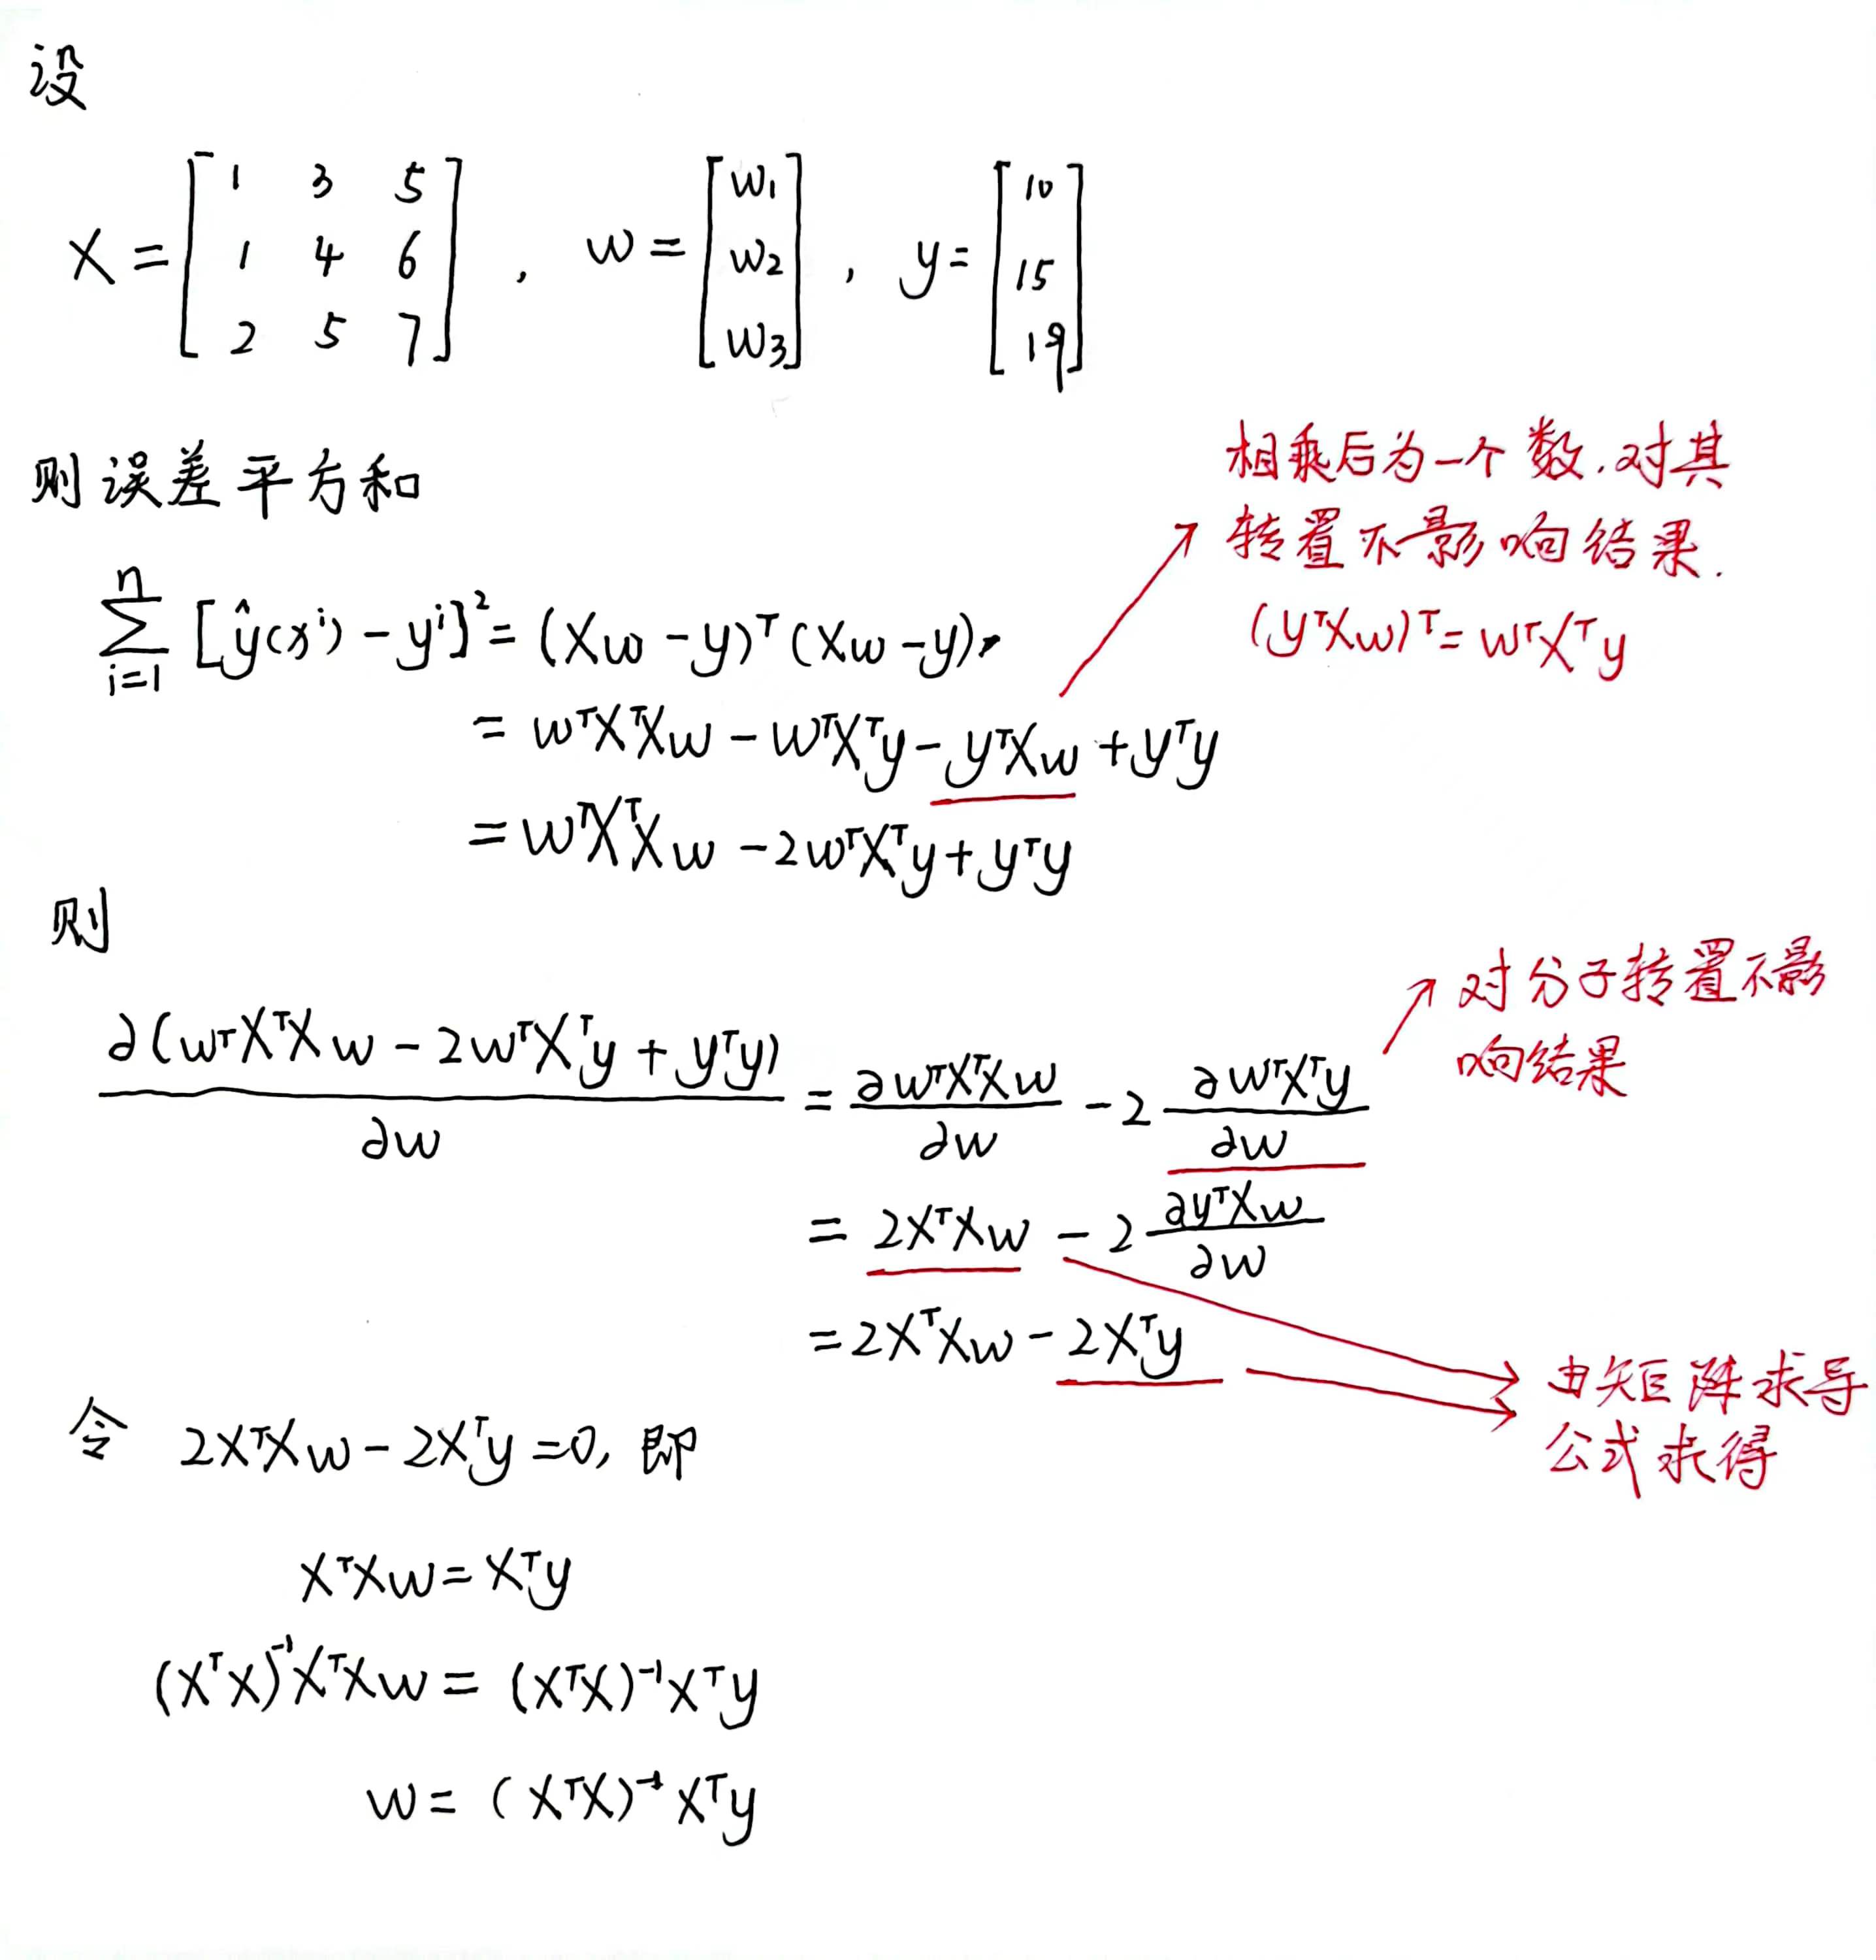 设
X = [1 3 5; 1 4 6; 2 5 7], w = [w₁; w₂; w₃], y = [10; 15; 19]
则误差平方和
相乘后为一个数.对其
转置不影响结果.
(yᵀXw)ᵀ = wᵀXᵀy
∑ᵢ₌₁ⁿ [ŷ(xⁱ) - yⁱ]² = (Xw - y)ᵀ(Xw - y)
= wᵀXᵀXw - wᵀXᵀy - yᵀXw + yᵀy
= wᵀXᵀXw - 2wᵀXᵀy + yᵀy
则
对分子转置不影
响结果
∂(wᵀXᵀXw - 2wᵀXᵀy + yᵀy)/∂w = ∂wᵀXᵀXw/∂w - 2 ∂wᵀXᵀy/∂w
= 2XᵀXw - 2 ∂yᵀXw/∂w
= 2XᵀXw - 2Xᵀy
由矩阵求导
公式求得
令 2XᵀXw - 2Xᵀy = 0, 即
XᵀXw = Xᵀy
(XᵀX)⁻¹XᵀXw = (XᵀX)⁻¹Xᵀy
w = (XᵀX)⁻¹Xᵀy